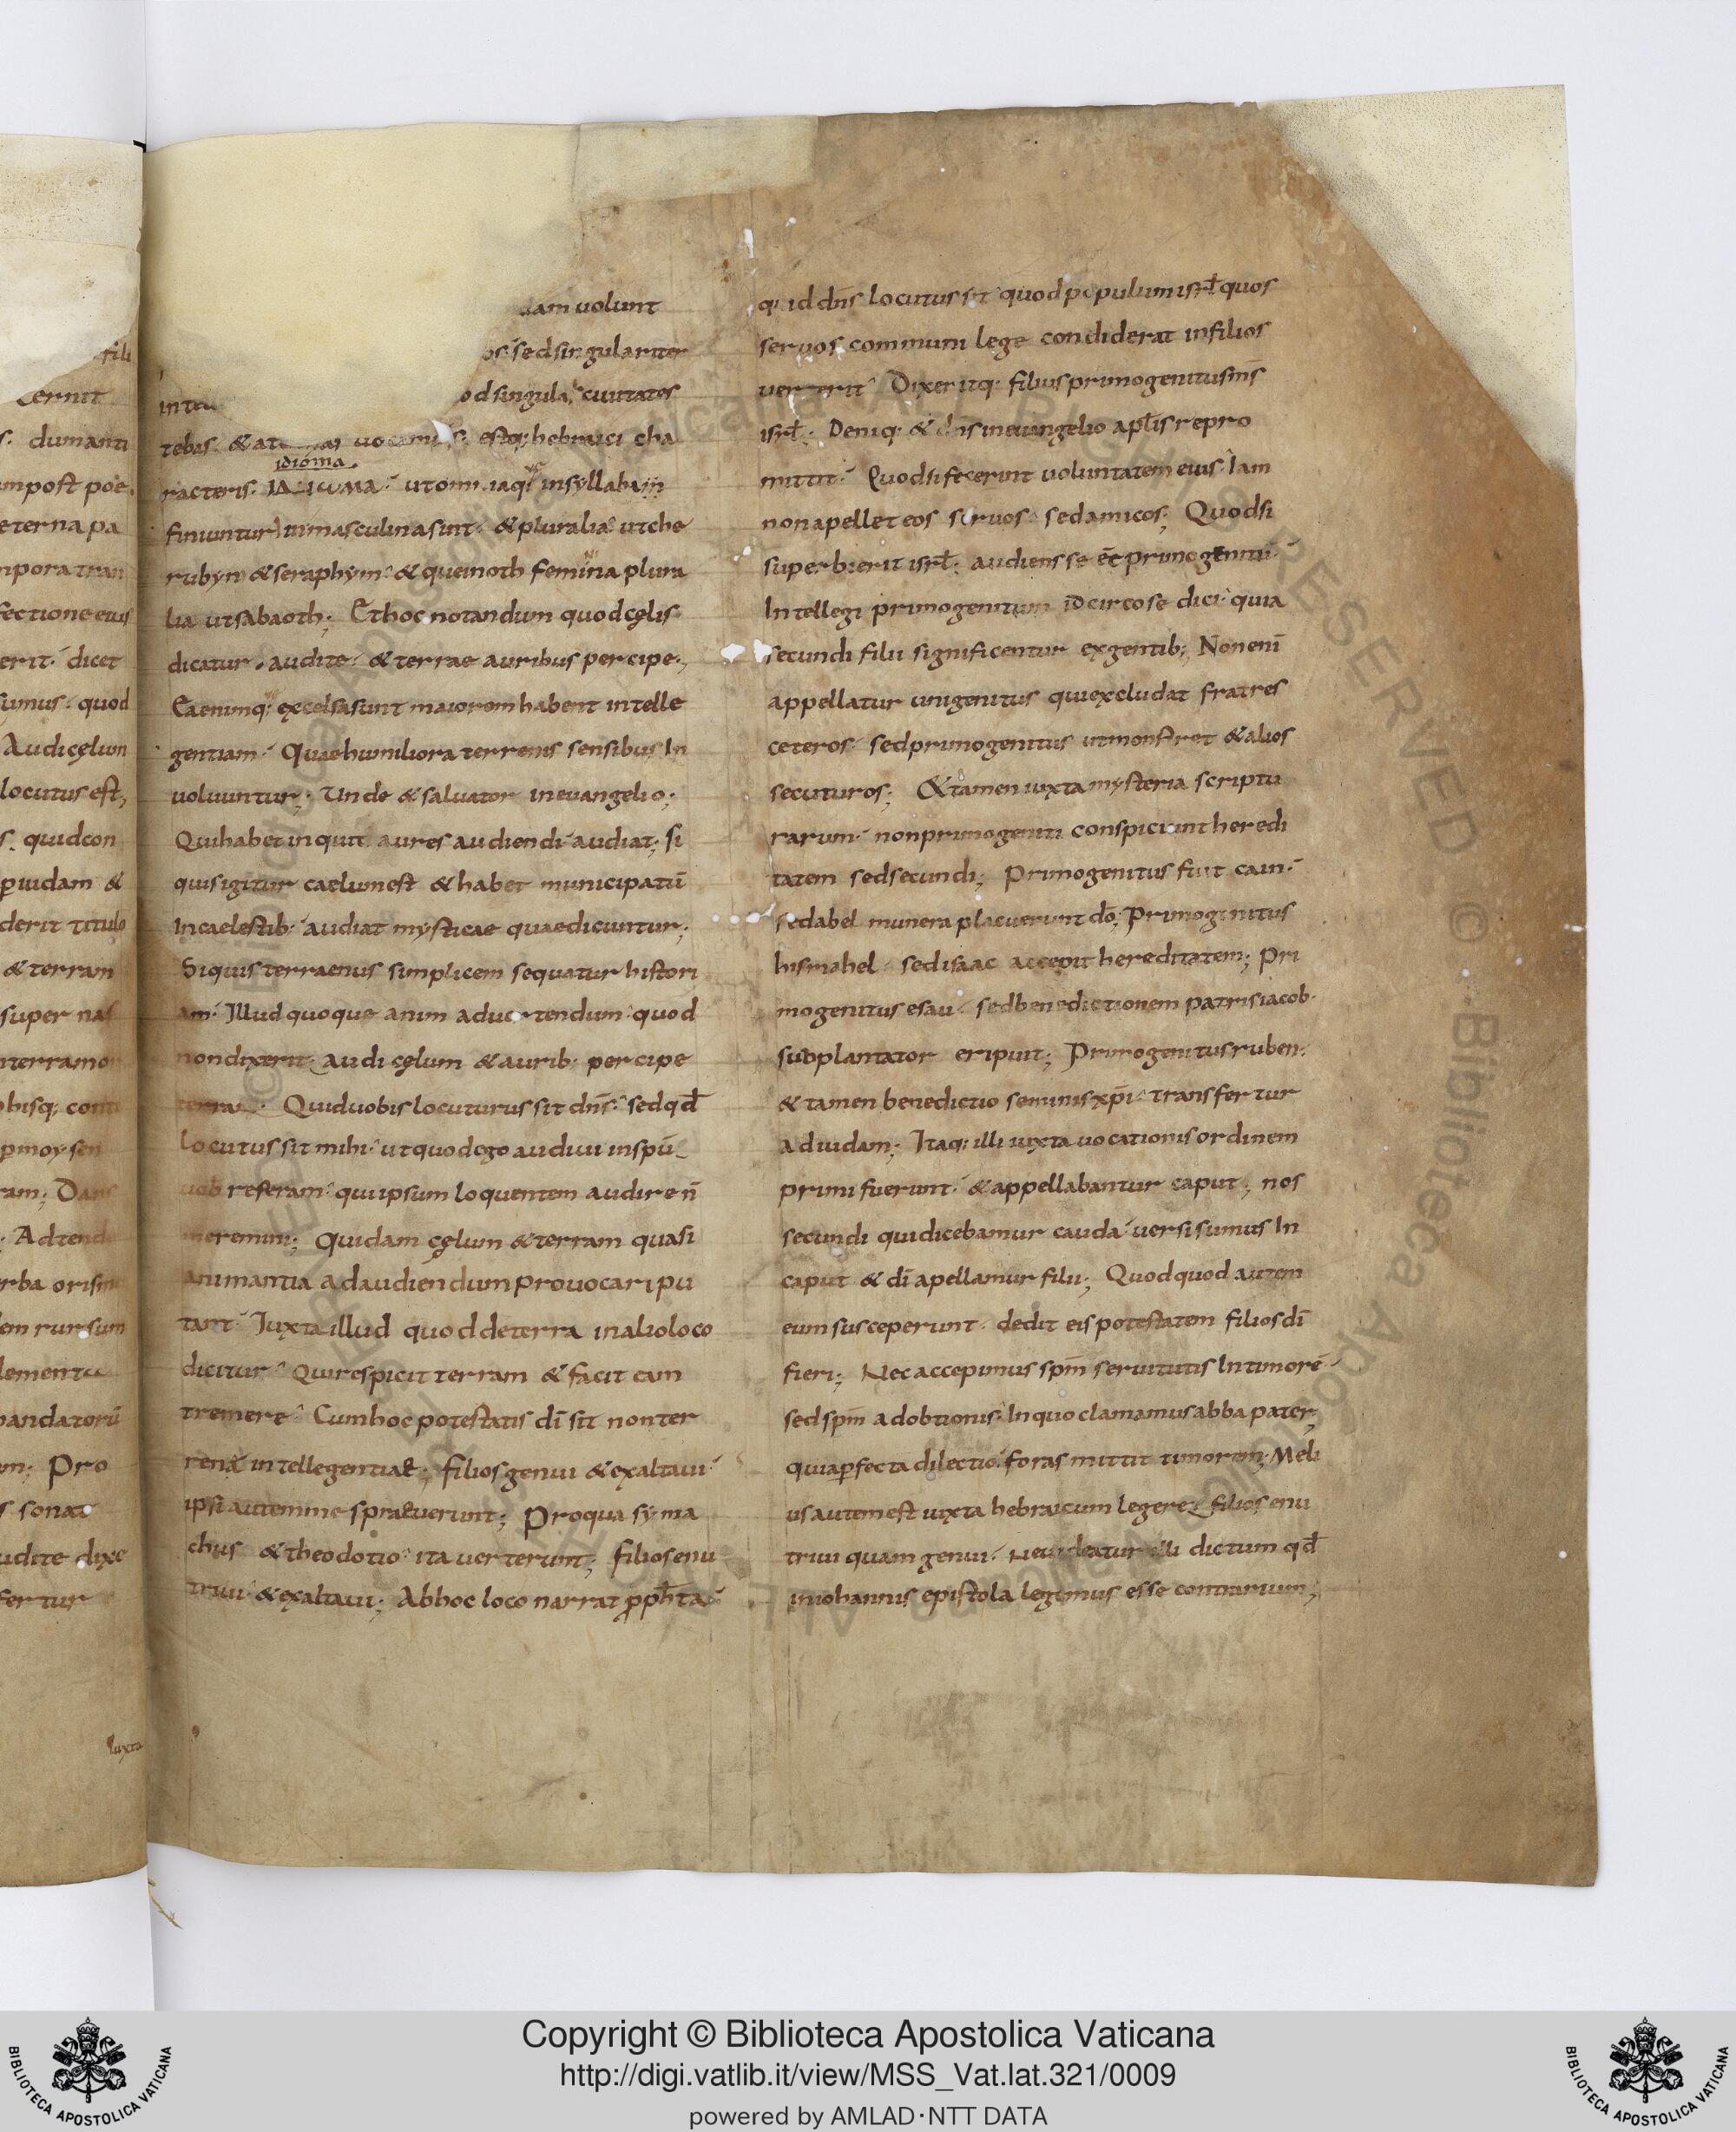 fili
cernit
s. dumanti
mpost poe
eterna pa
npora tran
fectione eius
erit. dicet
sumus. quod
Audi cęlum
locutus est;
s. quidcon
ꝑuidam &
derit titulo
& terram
super nas
nterramo
obisq; conti
ꝑmoysen
ram; Dans
Adtend
rba orism
em rursum
lementa
pandatorū
on; Pro
s sonat
udite dixe
fertur
iuxta
uolunt
sed singulariter
od singulas ciuitates
tebas. & at uocamus; estq; hebraici cha
idióma
racteris. ΙΔΙωΜΑ. ut omniaq; in syllabam
finiuntur im masculina sint. & pluralia. ut che
rubyn & seraphym. & que in oth feminina plura
lia ut sabaoth; Ethoc notandum quod cęlis
dicatur. audite. & terrae auribus percipe;
Ea enim q; excelsa sunt maiorem habent intelle
gentiam. Quae humiliora terrenis sensibus In
uoluuntur; Unde & saluator in euangelio;
Qui habet inquit aures audiendi audiat; si
quis igitur caelum est & habet municipatū
In caelestib; audiat mysticae quae dicuntur;
Siquis terraenus simplicem sequatur histori
am. Illud quoque anim aduertendum quod
non dixerit. audi cęlum & aurib; percipe
terra. Quid uobis locuturus sit dn̄s. sed qd̄
locutus sit mihi. ut quod ego audiui in spū
uob referam. qui ipsum loquentem audire n̄
meremini; Quidam cęlum & terram quasi
animantia ad audiendum prouocari pu
tant. Iuxta illud quod de terra in alio loco
dicitur. Qui respicit terram & facit eam
tremere. Cum hoc potestatis dī sit non ter
renę intellegentiae; filios genui & exaltaui.
ipsi autem me spraeuerunt; Pro qua syma
chus & theodotio ita uerterunt; filios enu
triui & exaltaui; Ab hoc loco narrat ꝓpheta
quid dn̄s locutus sit quod populum isrł quos
seruos communi lege condiderat in filios
uerterit. Dixeritq; filius primogenitus ms̄
isrł; Deniq; & dn̄s in euangelio apłis repro
mittit. Quod si fecerint uoluntatem eius. Iam
non apellet eos seruos sed amicos; Quod si
superbierit isrł; audiens se eē primogenitū.
Intellegi primogenitum idcirco se dici quia
secundi filii significentur ex gentib; Non enī
appellatur unigenitus qui excludat fratres
ceteros. sed primogenitus ut monstret & alios
secuturos; & tamen iuxta mysteria scriptu
rarum. non primogeniti conspiciunt heredi
tatem sed secundi; Primogenitus fuit cain.
sed abel munera placuerunt dō; Primogenitus
hismahel. sed isaac accepit hereditatem; Pri
mogenitus esau. sed benedictionem patris iacob.
subplantator eripuit; Primogenitus ruben.
& tamen benedictio seminis xp̄i transfertur
ad iudam; Itaq; illi iuxta uocationis ordinem
primi fuerunt. & appellabantur caput; nos
secundi qui dicebamur cauda uersi sumus In
caput & dī apellamur filii; Quod quod autem
eum susceperunt. dedit eis potestatem filios dī
fieri; Nec accepimus spm̄ seruitutis In timorē.
sed spm̄ adobtionis. In quo clamamus abba pater;
quia ꝑfecta dilectio foras mittit timorem; Meli
us autem est iuxta hebraicum legere. filios enu
triui quam genui. Ne uideatur illi dictum qd̄
in iohannis epistola legimus esse contrarium;
Copyright © Biblioteca Apostolica Vaticana
http://digi.vatlib.it/view/MSS_Vat.lat.321/0009
powered by AMLAD·NTT DATA
BIBLIOTECA APOSTOLICA VATICANA
BIBLIOTECA APOSTOLICA VATICANA